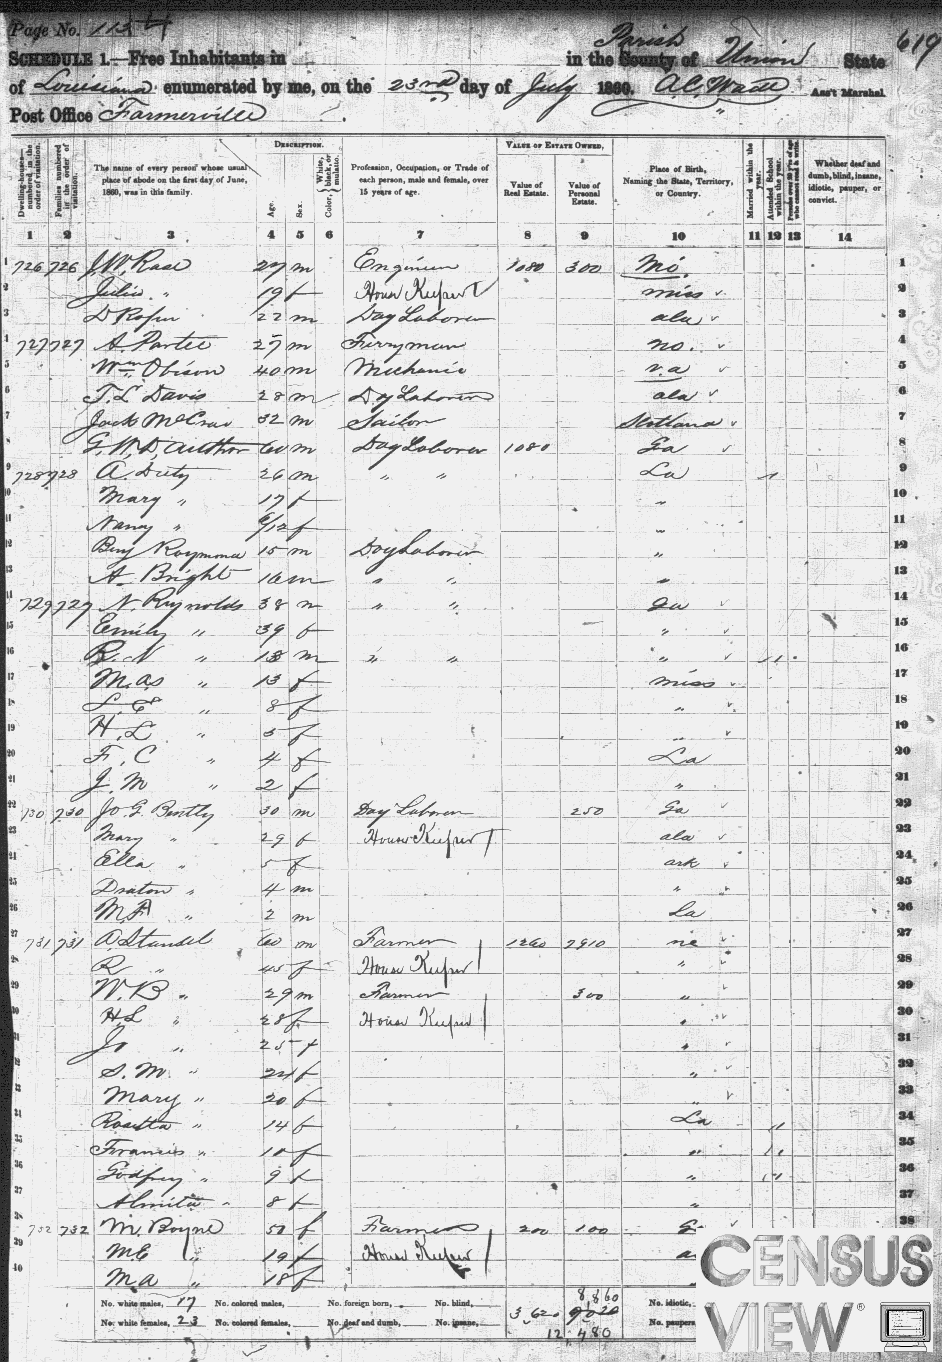 Page No. 113
619
Schedule 1.—Free Inhabitants in in the County of Parish Union State
of Louisiana enumerated by me, on the 23rd day of July 1860. Ass't Marshal.
Post Office Farmerville
Dwelling-houses—numbered in the order of visitation.
Families numbered in the order of visitation.
The name of every person whose usual place of abode on the first day of June, 1860, was in this family.
Description.
Age.
Sex.
Color, White, black, or mulatto.
Profession, Occupation, or Trade of each person, male and female, over 15 years of age.
Value of Estate Owned.
Value of Real Estate.
Value of Personal Estate.
Place of Birth, Naming the State, Territory, or Country.
Married within the year.
Attended School within the year.
Whether deaf and dumb, blind, insane, idiotic, pauper, or convict.
1 2 3 4 5 6 7 8 9 10 11 12 13 14
1 726 726 J. W. 27 m Engineer 1080 300 Mo 1
2 Julia " 19 f House Keeper miss 2
3 D 22 m Day Laborer ala 3
4 727 727 A. 27 m Ferryman no. 4
5 Wm 40 m Mechanic v.a 5
6 T. L. Davis 28 m Day Laborer ala 6
7 Jack McCraw 32 m Sailor Scotland 7
8 G. W. D. Author 60 m Day Laborer 1080 Ga 8
9 728 728 A. 26 m " " La 9
10 Mary " 17 f " 10
11 Nancy " 6/12 f " 11
12 Benj Raymond 15 m Day Laborer " 12
13 A. Bright 16 m " " " 13
14 729 729 N. Reynolds 38 m " " Ga 14
15 Emily " 39 f " 15
16 R. N " 18 m " " " 16
17 M. as " 13 f miss 17
18 L. E " 8 f " 18
19 H. L " 5 f " 19
20 F. C " 4 f La 20
21 J. M " 2 f " 21
22 730 730 Jo. G. Bently 30 m Day Laborer 250 Ga 22
23 Mary " 29 f House Keeper ala 23
24 Ella " 5 f ark 24
25 Draton " 4 m " 25
26 M. A " 2 m La 26
27 731 731 A. 60 m Farmer 1260 7910 27
28 R " 45 f House Keeper " 28
29 W. B " 29 m Farmer 300 " 29
30 H L " 28 f House Keeper " 30
31 Jo " 25 f " 31
32 S. M. " 24 f " 32
33 Mary " 20 f " 33
34 Rosetta " 14 f La 34
35 Francis " 10 f " 35
36 Godfrey " 9 f " 36
37 Almita " 8 f " 37
38 732 732 M. Boyne 50 f Farmer 200 100 38
39 M E " 19 f House Keeper
40 M A " 18 f
No. white males, 17 No. colored males, No. foreign born, No. blind, 8860 No. idiotic,
No. white females, 23 No. colored females, No. deaf and dumb, No. insane, 3,620 No. paupers,
12,480
CENSUS
VIEW®